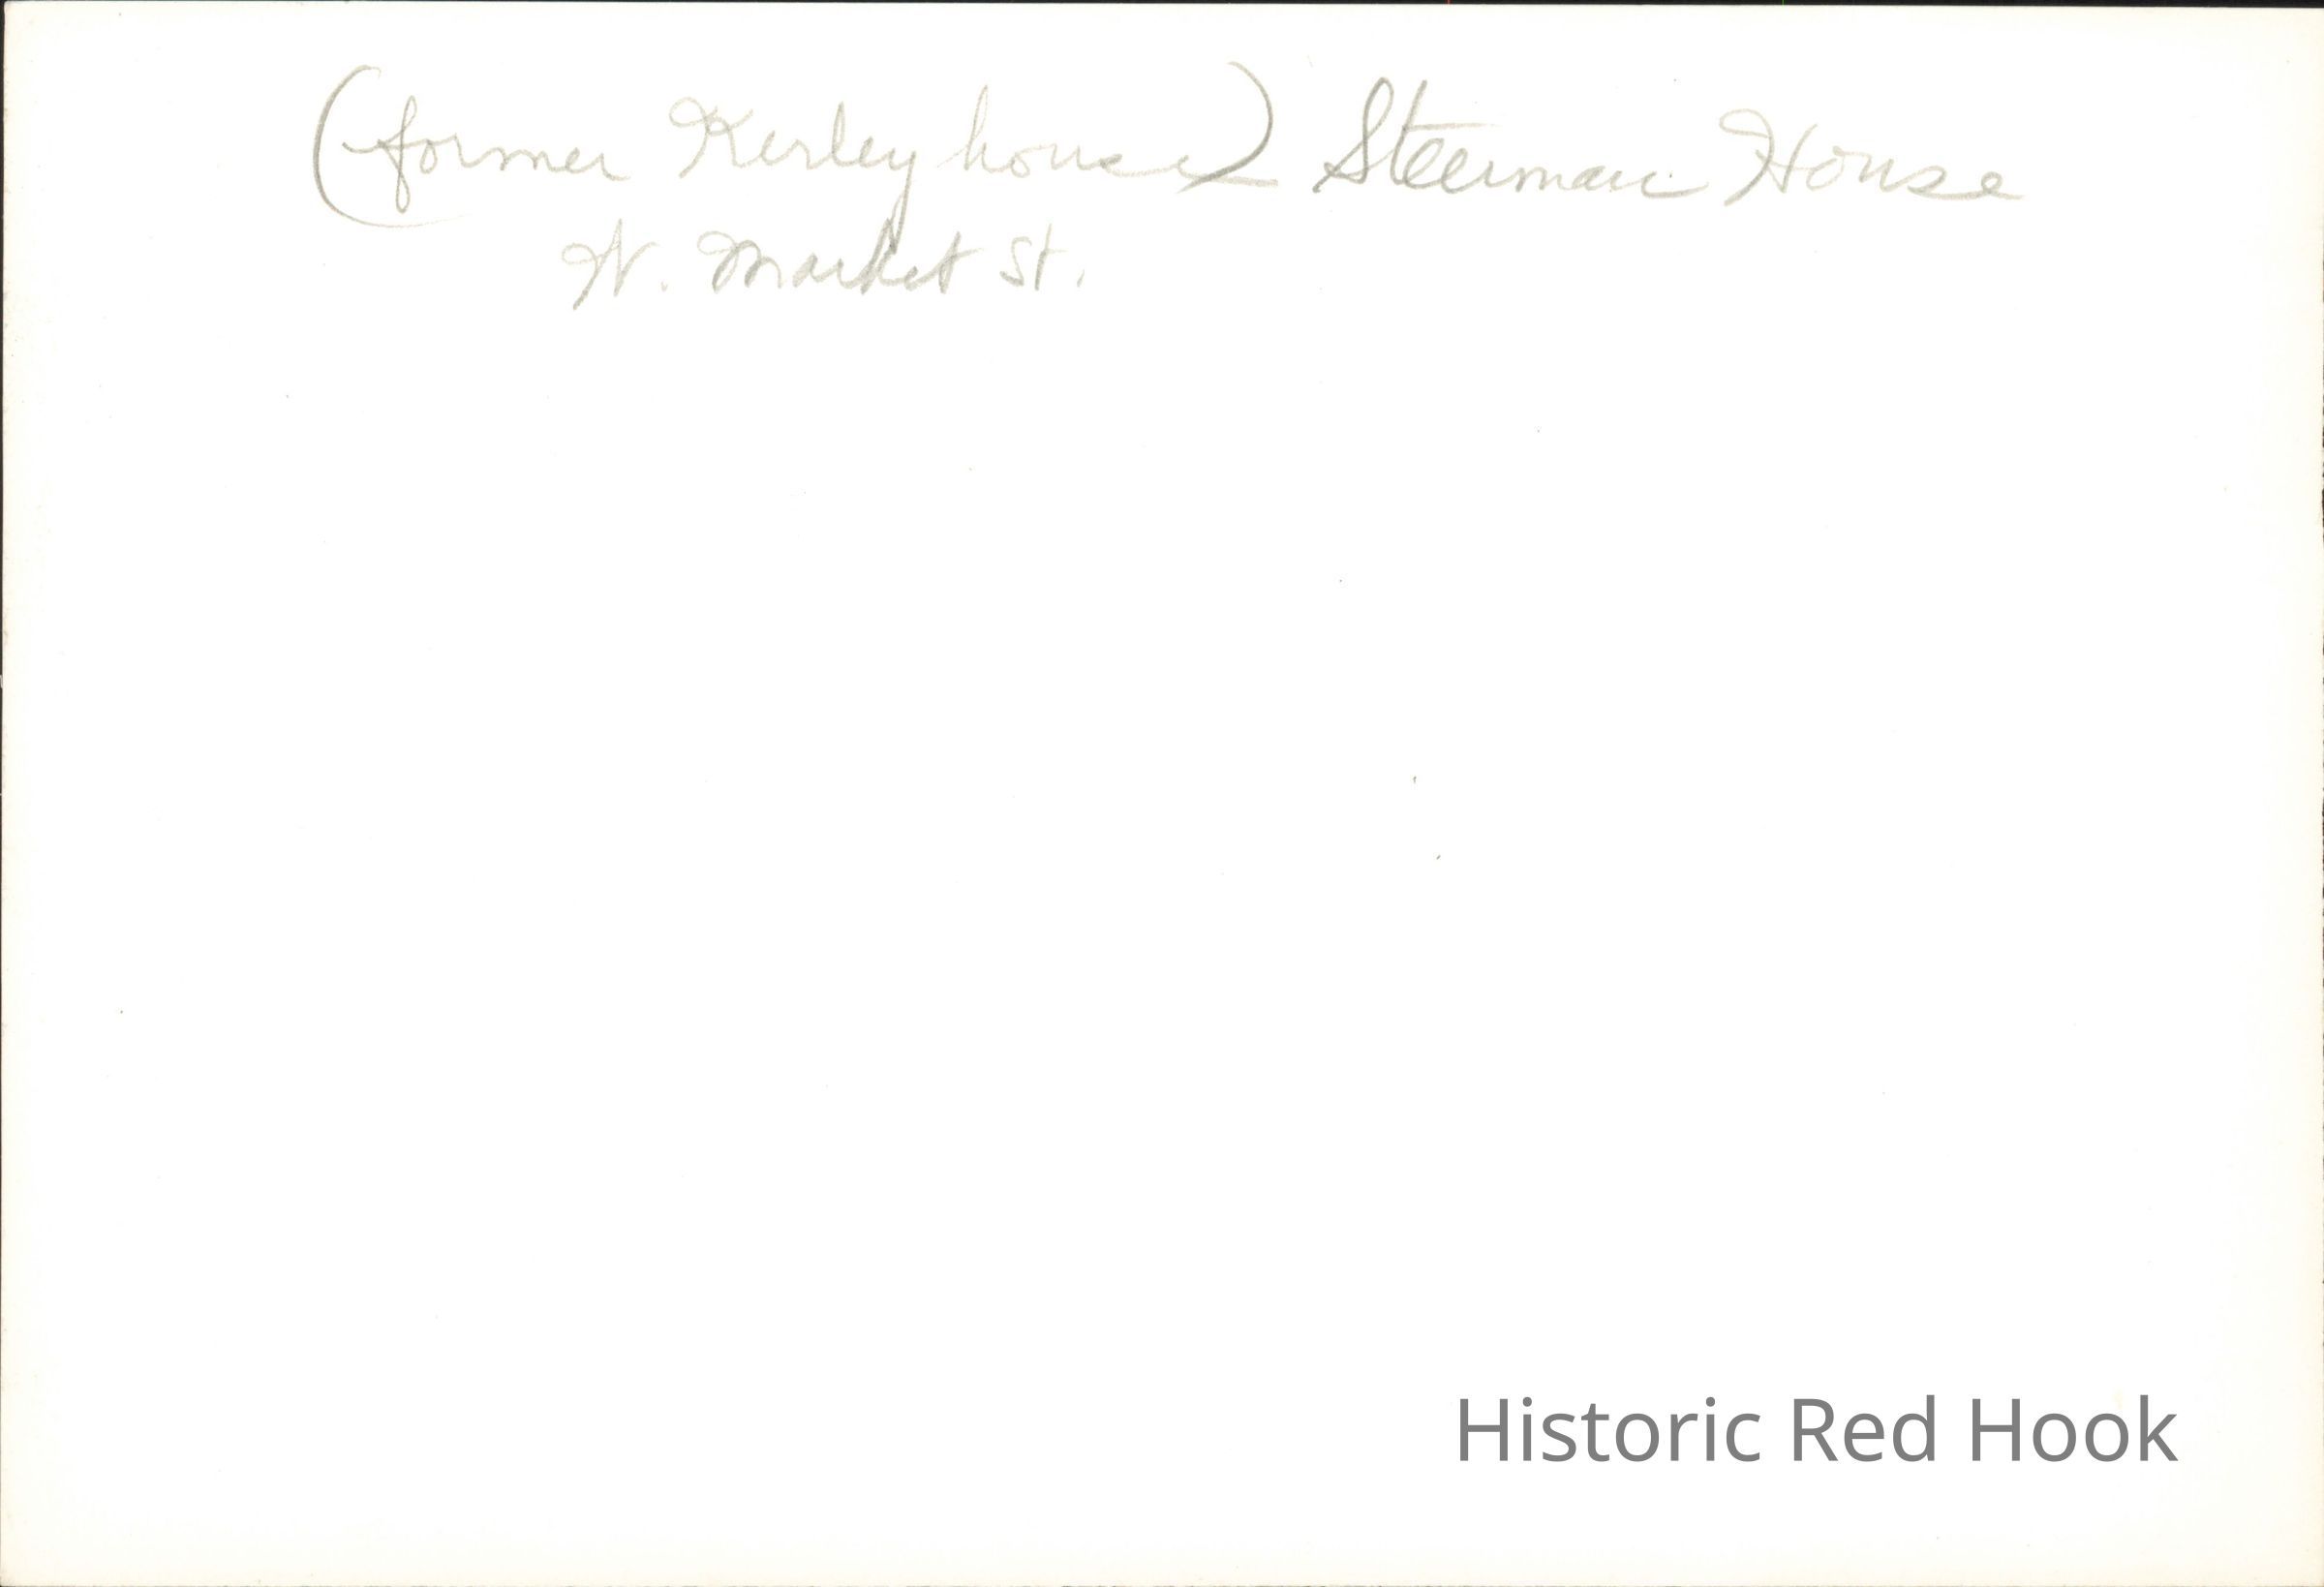 (former Kerley house) Steerman House
W. Market St.
Historic Red Hook